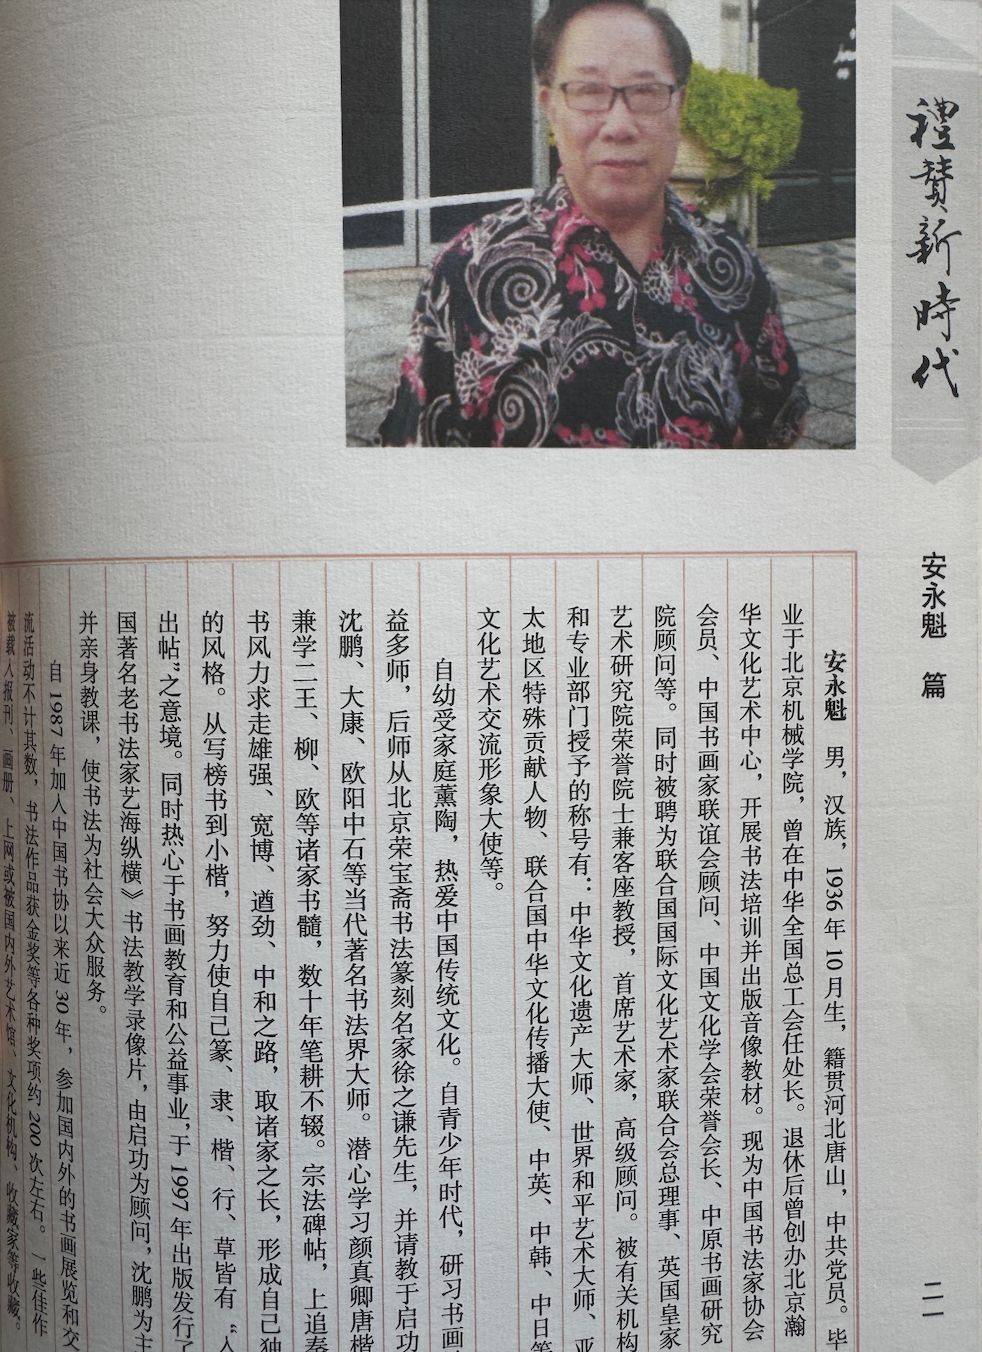 禮贊新時代
安永魁 篇
二一
安永魁 男，汉族，1936年10月生，籍贯河北唐山，中共党员。毕
业于北京机械学院，曾在中华全国总工会任处长。退休后曾创办北京瀚
华文化艺术中心，开展书法培训并出版音像教材。现为中国书法家协会
会员、中国书画家联谊会顾问、中国文化学会荣誉会长、中原书画研究
院顾问等。同时被聘为联合国国际文化艺术家联合会总理事、英国皇家
艺术研究院荣誉院士兼客座教授，首席艺术家，高级顾问。被有关机构
和专业部门授予的称号有：中华文化遗产大师、世界和平艺术大师、亚
太地区特殊贡献人物、联合国中华文化传播大使、中英、中韩、中日等
文化艺术交流形象大使等。
自幼受家庭薰陶，热爱中国传统文化。自青少年时代，研习书画
益多师，后师从北京荣宝斋书法篆刻名家徐之谦先生，并请教于启功
沈鹏、大康、欧阳中石等当代著名书法界大师。潜心学习颜真卿唐楷
兼学二王、柳、欧等诸家书髓，数十年笔耕不辍。宗法碑帖，上追秦
书风力求走雄强、宽博、遒劲、中和之路，取诸家之长，形成自己独
的风格。从写榜书到小楷，努力使自己篆、隶、楷、行、草皆有“人
出帖”之意境。同时热心于书画教育和公益事业,于1997年出版发行了
国著名老书法家艺海纵横》书法教学录像片，由启功为顾问，沈鹏为主
并亲身教课，使书法为社会大众服务。
自1987年加入中国书协以来近30年，参加国内外的书画展览和交
流活动不计其数，书法作品获金奖等各种奖项约200次左右。一些佳作
被载入报刊、画册、上网或被国内外艺术馆、文化机构、收藏家等收藏。